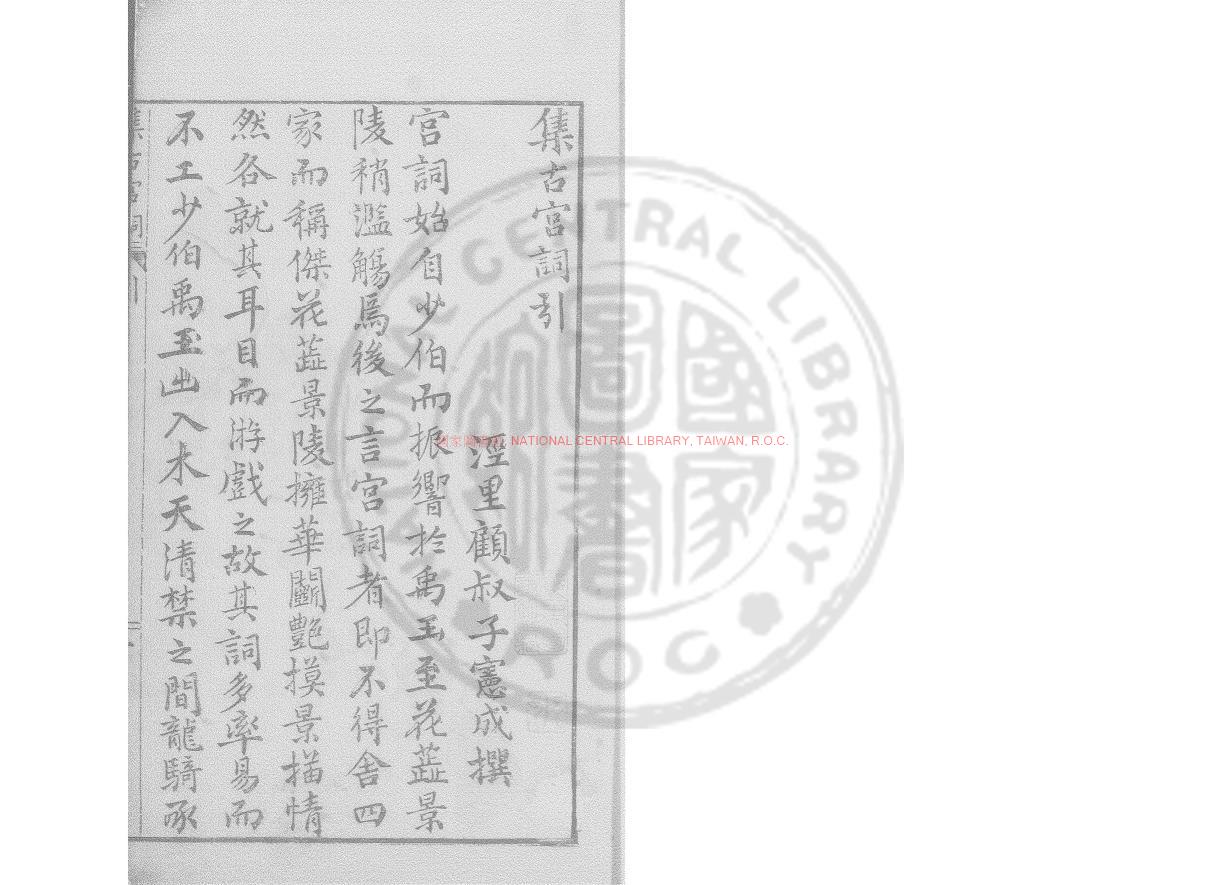 集古宮詞引
涇里顧叔子憲成撰
宮詞始自少伯而振響於禹玉至花蕊景
陵稍濫觴焉後之言宮詞者即不得舍四
家而稱傑花蕊景陵擁華鬬艷摸景描情
然各就其耳目而游戲之故其詞多率易而
不工少伯禹玉出入木天清禁之間龍騎承
集古宮詞 引 一
國家圖書館 NATIONAL CENTRAL LIBRARY, TAIWAN, R.O.C.
NATIONAL CENTRAL LIBRARY
R.O.C
國家圖書館